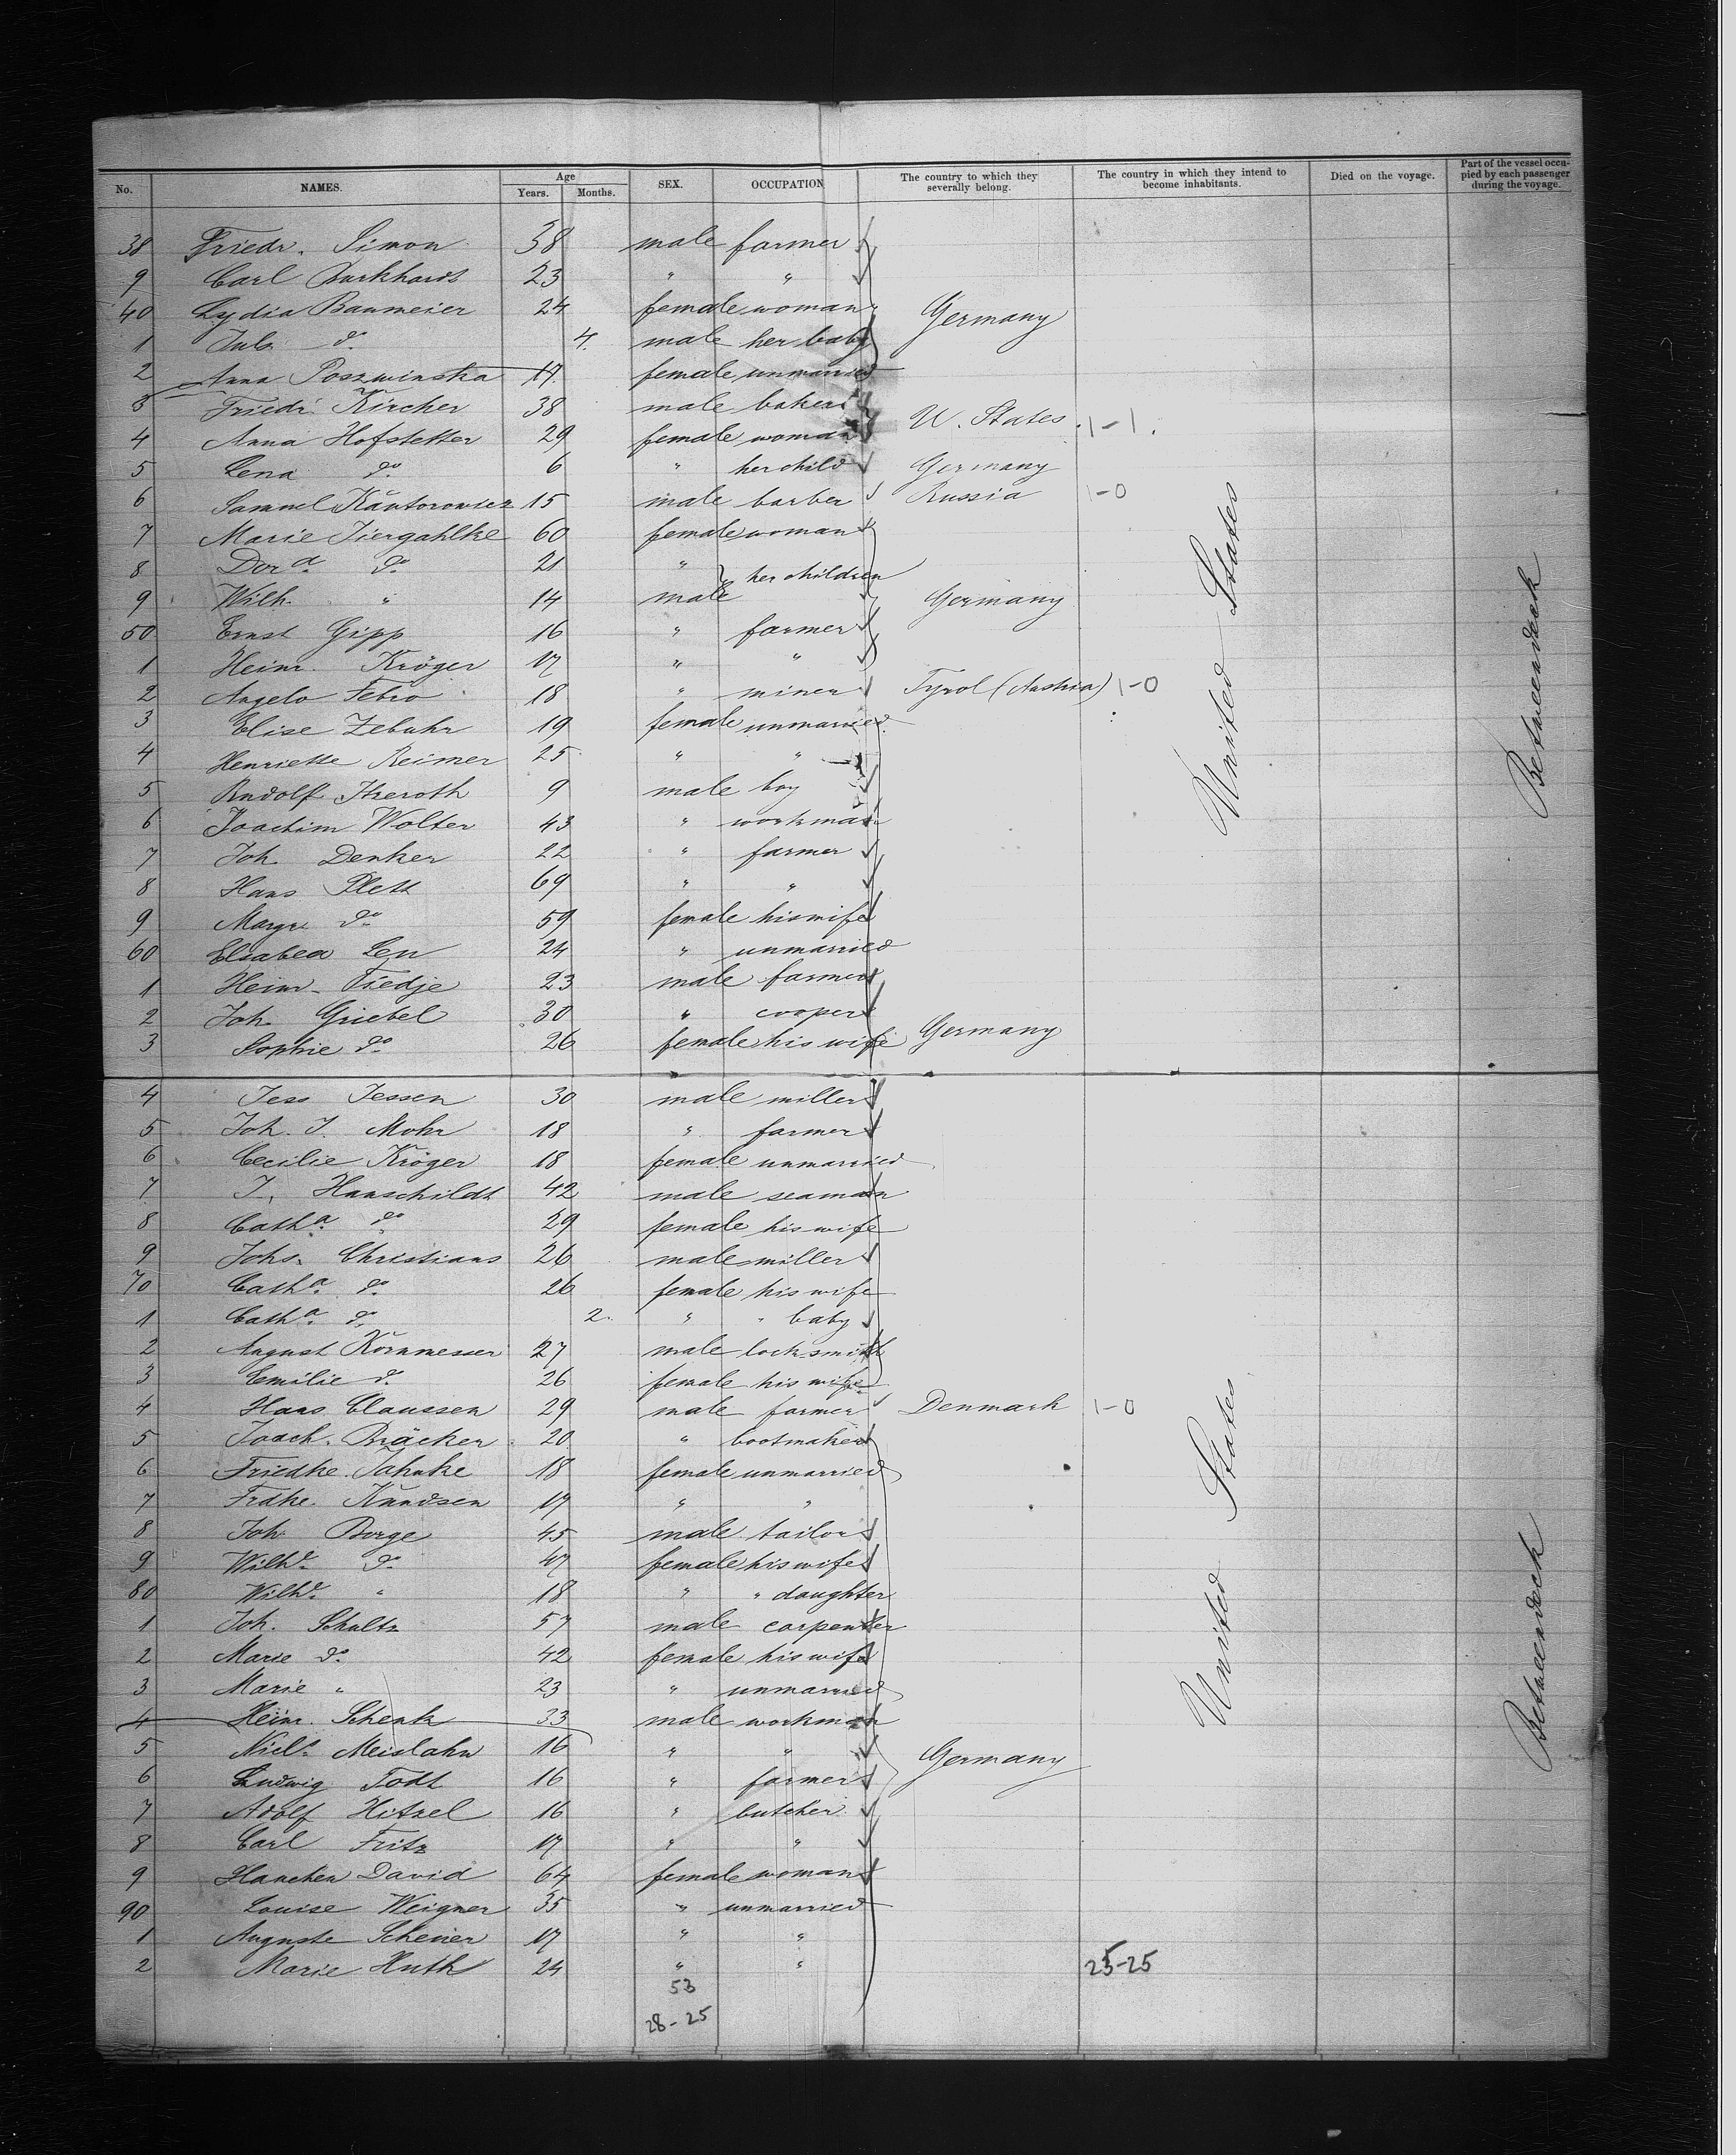 No. NAMES. Age Years. Months. SEX. OCCUPATION The country to which they severally belong. The country in which they intend to become inhabitants. Died on the voyage. Part of the vessel occupied by each passenger during the voyage.
38 Friedr. Simon 38 male farmer
9 Carl Burkhardt 23 " "
40 Lydia Baumeier 24 female woman Germany
1 Jul. do. 4. male her baby
2 Anna Poszwinska 17. female unmarried
3 Friedr. Kircher 38 male baker U. States 1-1.
4 Anna Hofstetter 29 female woman
5 Lena do. 6 " her child Germany
6 Samuel Kantorowicz 15 male barber Russia 1-0
7 Marie Tiergahlke 60 female woman
8 Dora. do. 21 " her children
9 Wilh. " 14 male Germany
50 Ernst Gipp 16 " farmer
1 Heinr. Kröger 17 " "
2 Angelo Febro 18 " miner Tyrol (Austria) 1-0
3 Elise Zebuhr 19 female unmarried
4 Henriette Reimer 25 " "
5 Rudolf Itzeroth 9 male boy
6 Joachim Wolter 43 " workman
7 Joh. Denker 22 " farmer
8 Hans Plett 69 " "
9 Margr. do. 59 female his wife
60 Elsabea Leu 24 " unmarried
1 Heinr. Tiedje 23 male farmer
2 Joh. Griebel 30 " cooper
3 Sophie do. 26 female his wife Germany
United States
Betweendeck
4 Jess Jessen 30 male miller
5 Joh. J. Mohr 18 " farmer
6 Cecilie Kröger 18 female unmarried
7 J. Hanschildt 42 male seaman
8 Catha. do. 29 female his wife
9 Johs. Christians 26 male miller
70 Catha. do. 26 female his wife
1 Catha. do. 2. " " baby
2 August Kornmesser 27 male locksmith
3 Emilie do. 26 female his wife
4 Hans Claussen 29 male farmer Denmark 1-0
5 Joach. Bräcker 20 " bootmaker
6 Friedke. Jahnke 18 female unmarried
7 Frdke. Knudsen 17 " "
8 Joh. Borge 45 male tailor
9 Wilhe. do. 47 female his wife
80 Wilhe. " 18 " " daughter
1 Joh. Schultz 57 male carpenter
2 Marie do. 42 female his wife
3 Marie " 23 " unmarried
4 Heinr. Schenk 33 male workman
5 Niels. Meislahn 16 " " Germany
6 Ludwig Todt 16 " farmer
7 Adolf Hitzel 16 " butcher
8 Carl Fritz 17 " "
9 Hanchen David 64 female woman
90 Louise Weigner 35 " unmarried
1 Auguste Scheuer 17 " "
2 Marie Huth 24 " " 25-25
United States
Betweendeck
53
28-25